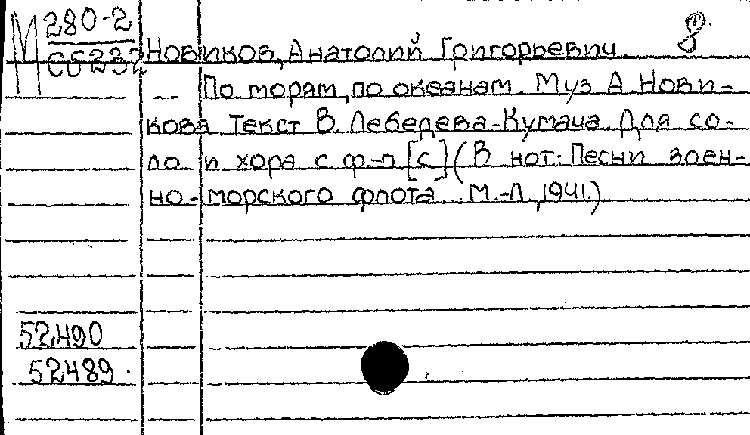 М 280-2
Сб232
Новиков, Анатолий Григорьевич.
По морям, по океанам. Муз А. Нови-
кова Текст В. Лебедева-Кумача. Для со-
ло и хора с ф-п [с] (В нот: Песни воен-
но-морского флота. М.-Л, 1941.)
52490
52489.